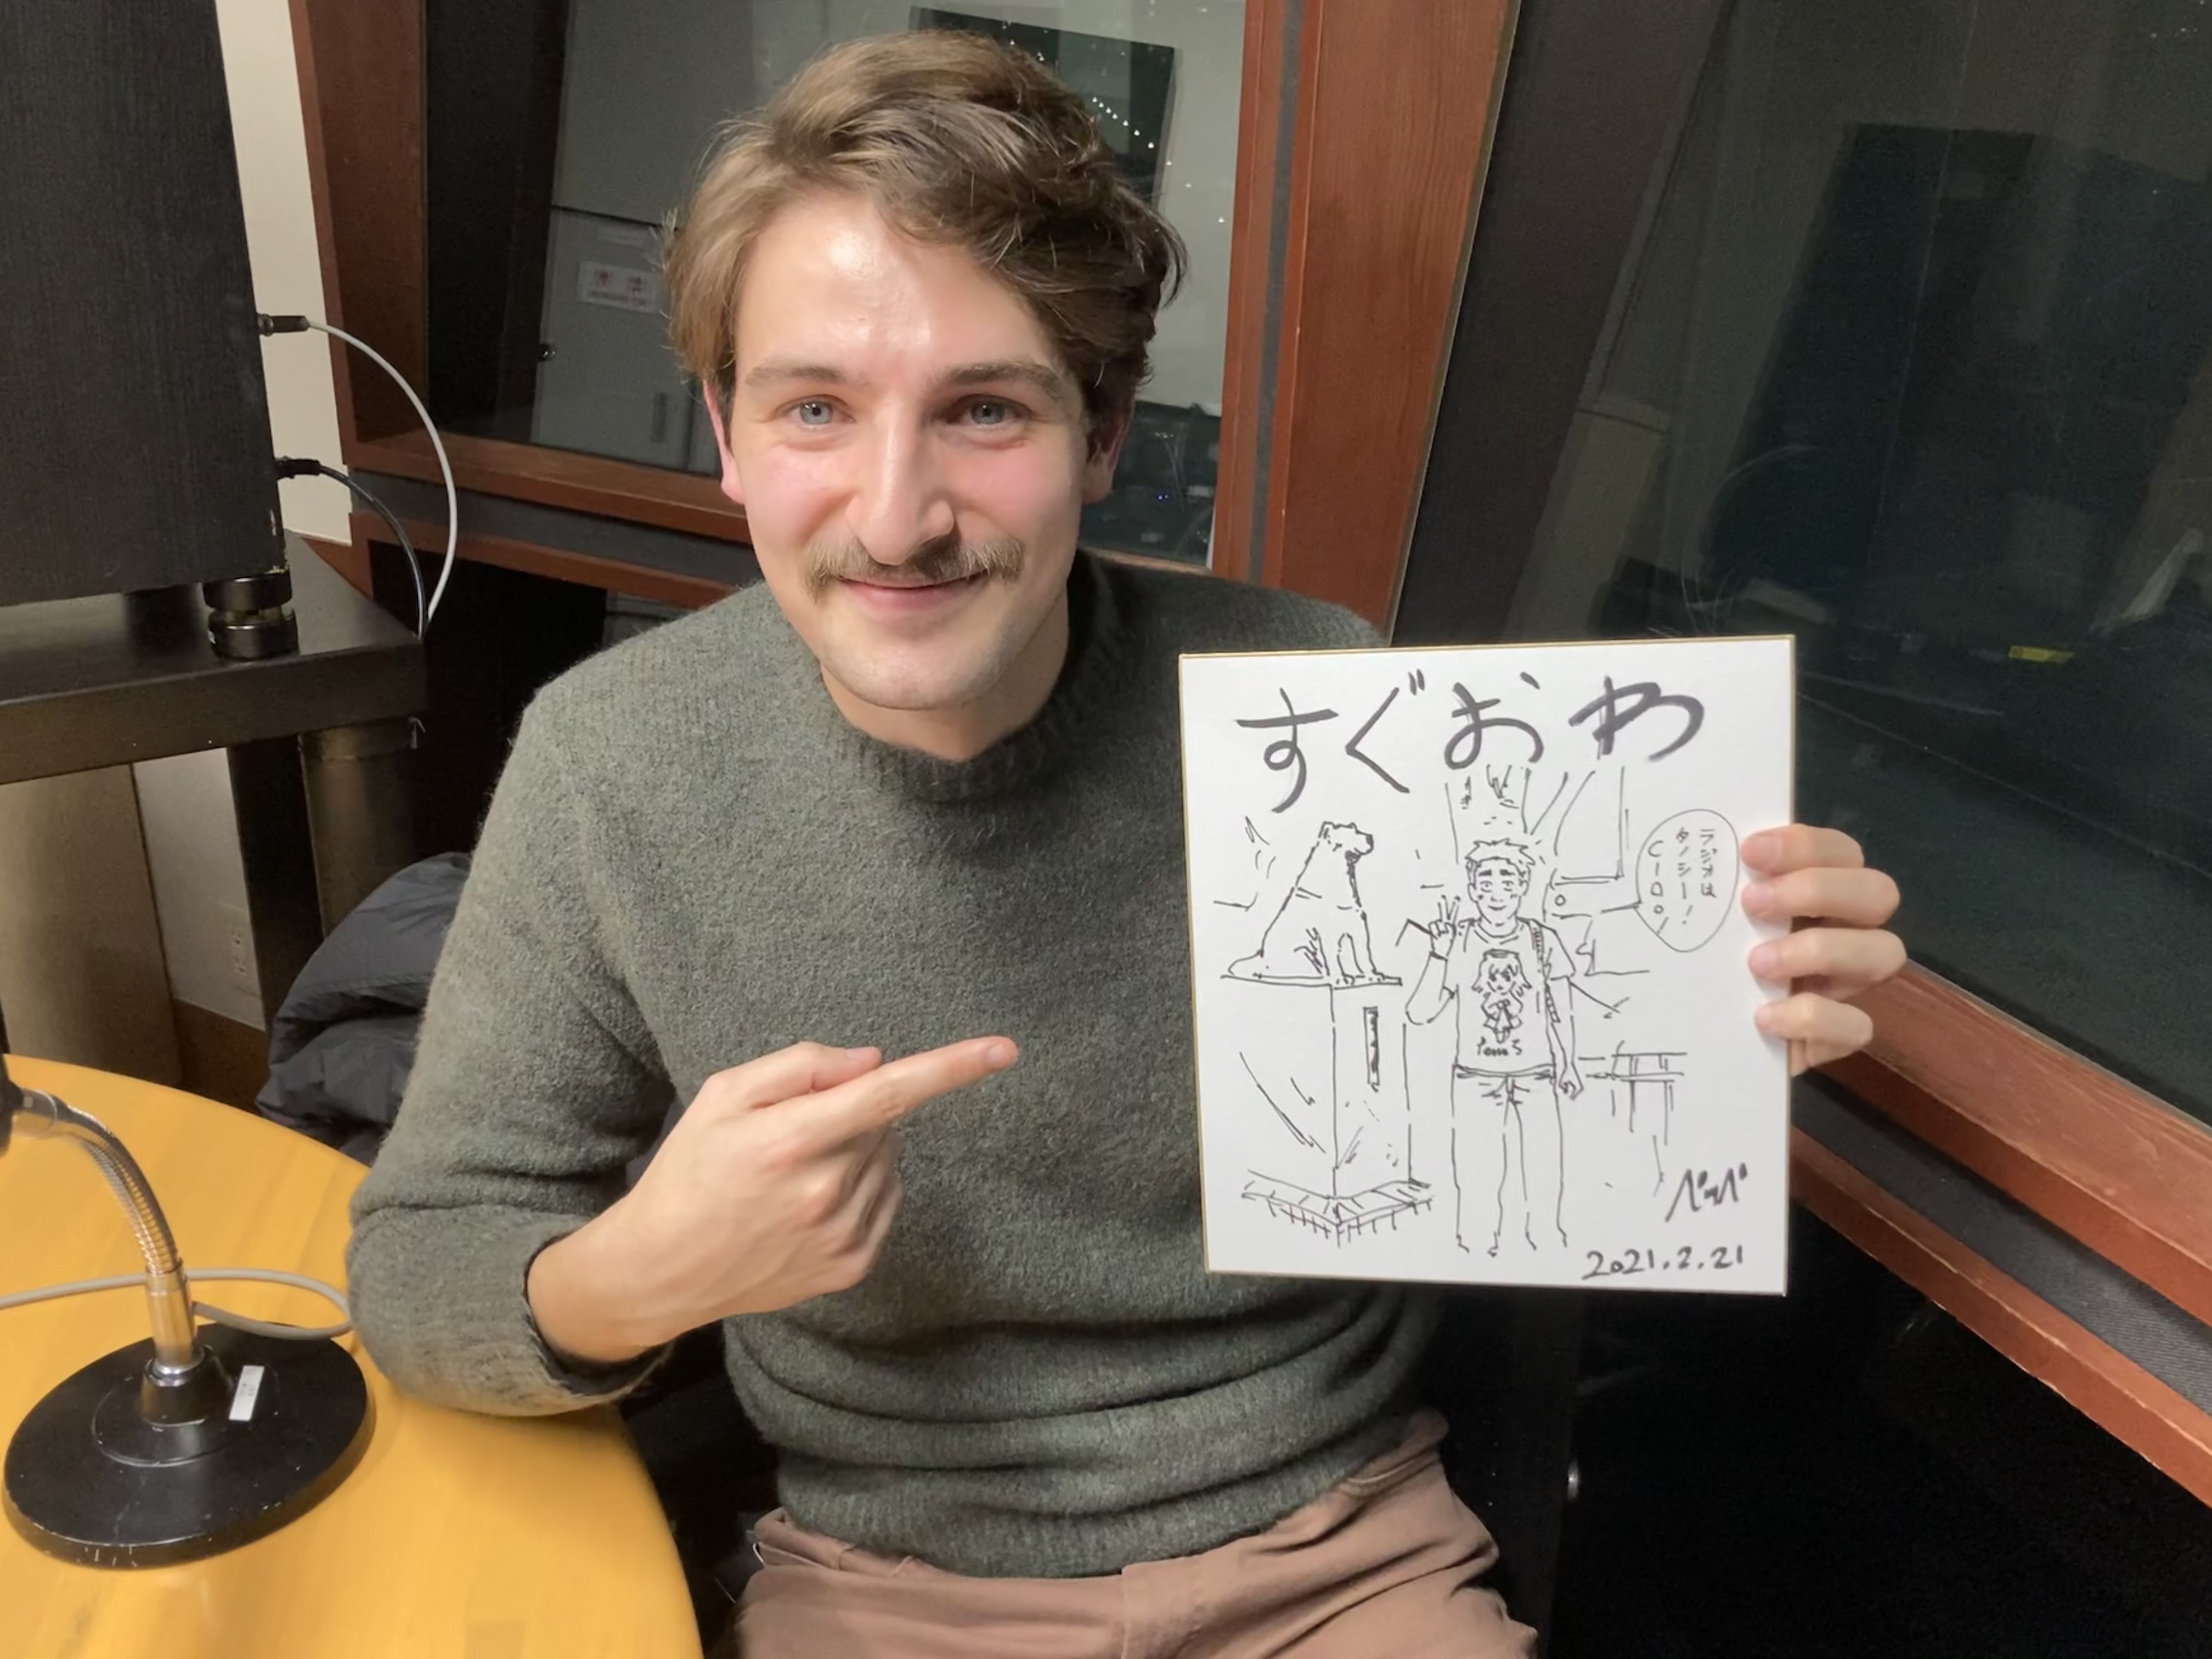 すぐおわ
ラジオは
タノシー!
ペッペ
2021.2.21